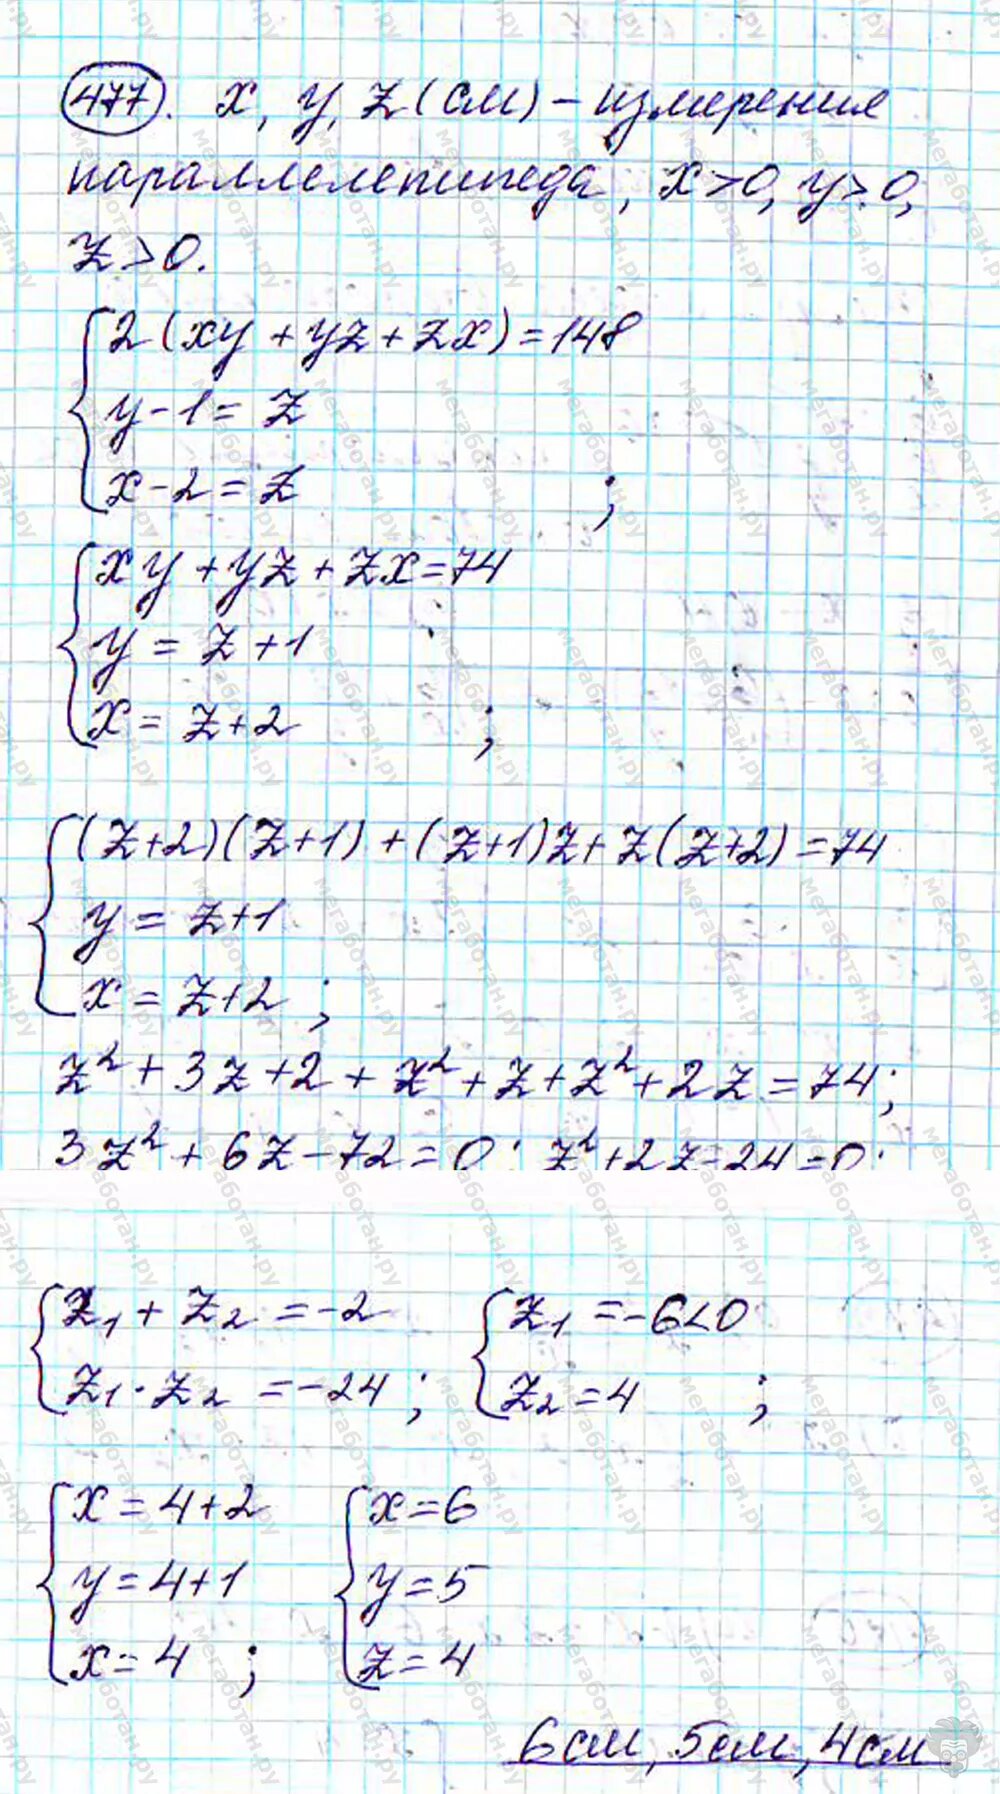 477. x, y, z (см) – измерения
параллелепипеда, x>0, y>0,
z>0.
2(xy + yz + zx) = 148
y - 1 = z
x - 2 = z ;
xy + yz + zx = 74
y = z + 1
x = z + 2 ;
(z+2)(z+1) + (z+1)z + z(z+2) = 74
y = z+1
x = z+2 ;
z² + 3z + 2 + z² + z + z² + 2z = 74;
3z² + 6z - 72 = 0; z² + 2z - 24 = 0;
z₁ + z₂ = -2 z₁ = -6<0
z₁ · z₂ = -24 ; z₂ = 4 ;
x = 4+2 x = 6
y = 4+1 y = 5
x = 4 ; z = 4
6см, 5см, 4см
мегаботан.ру